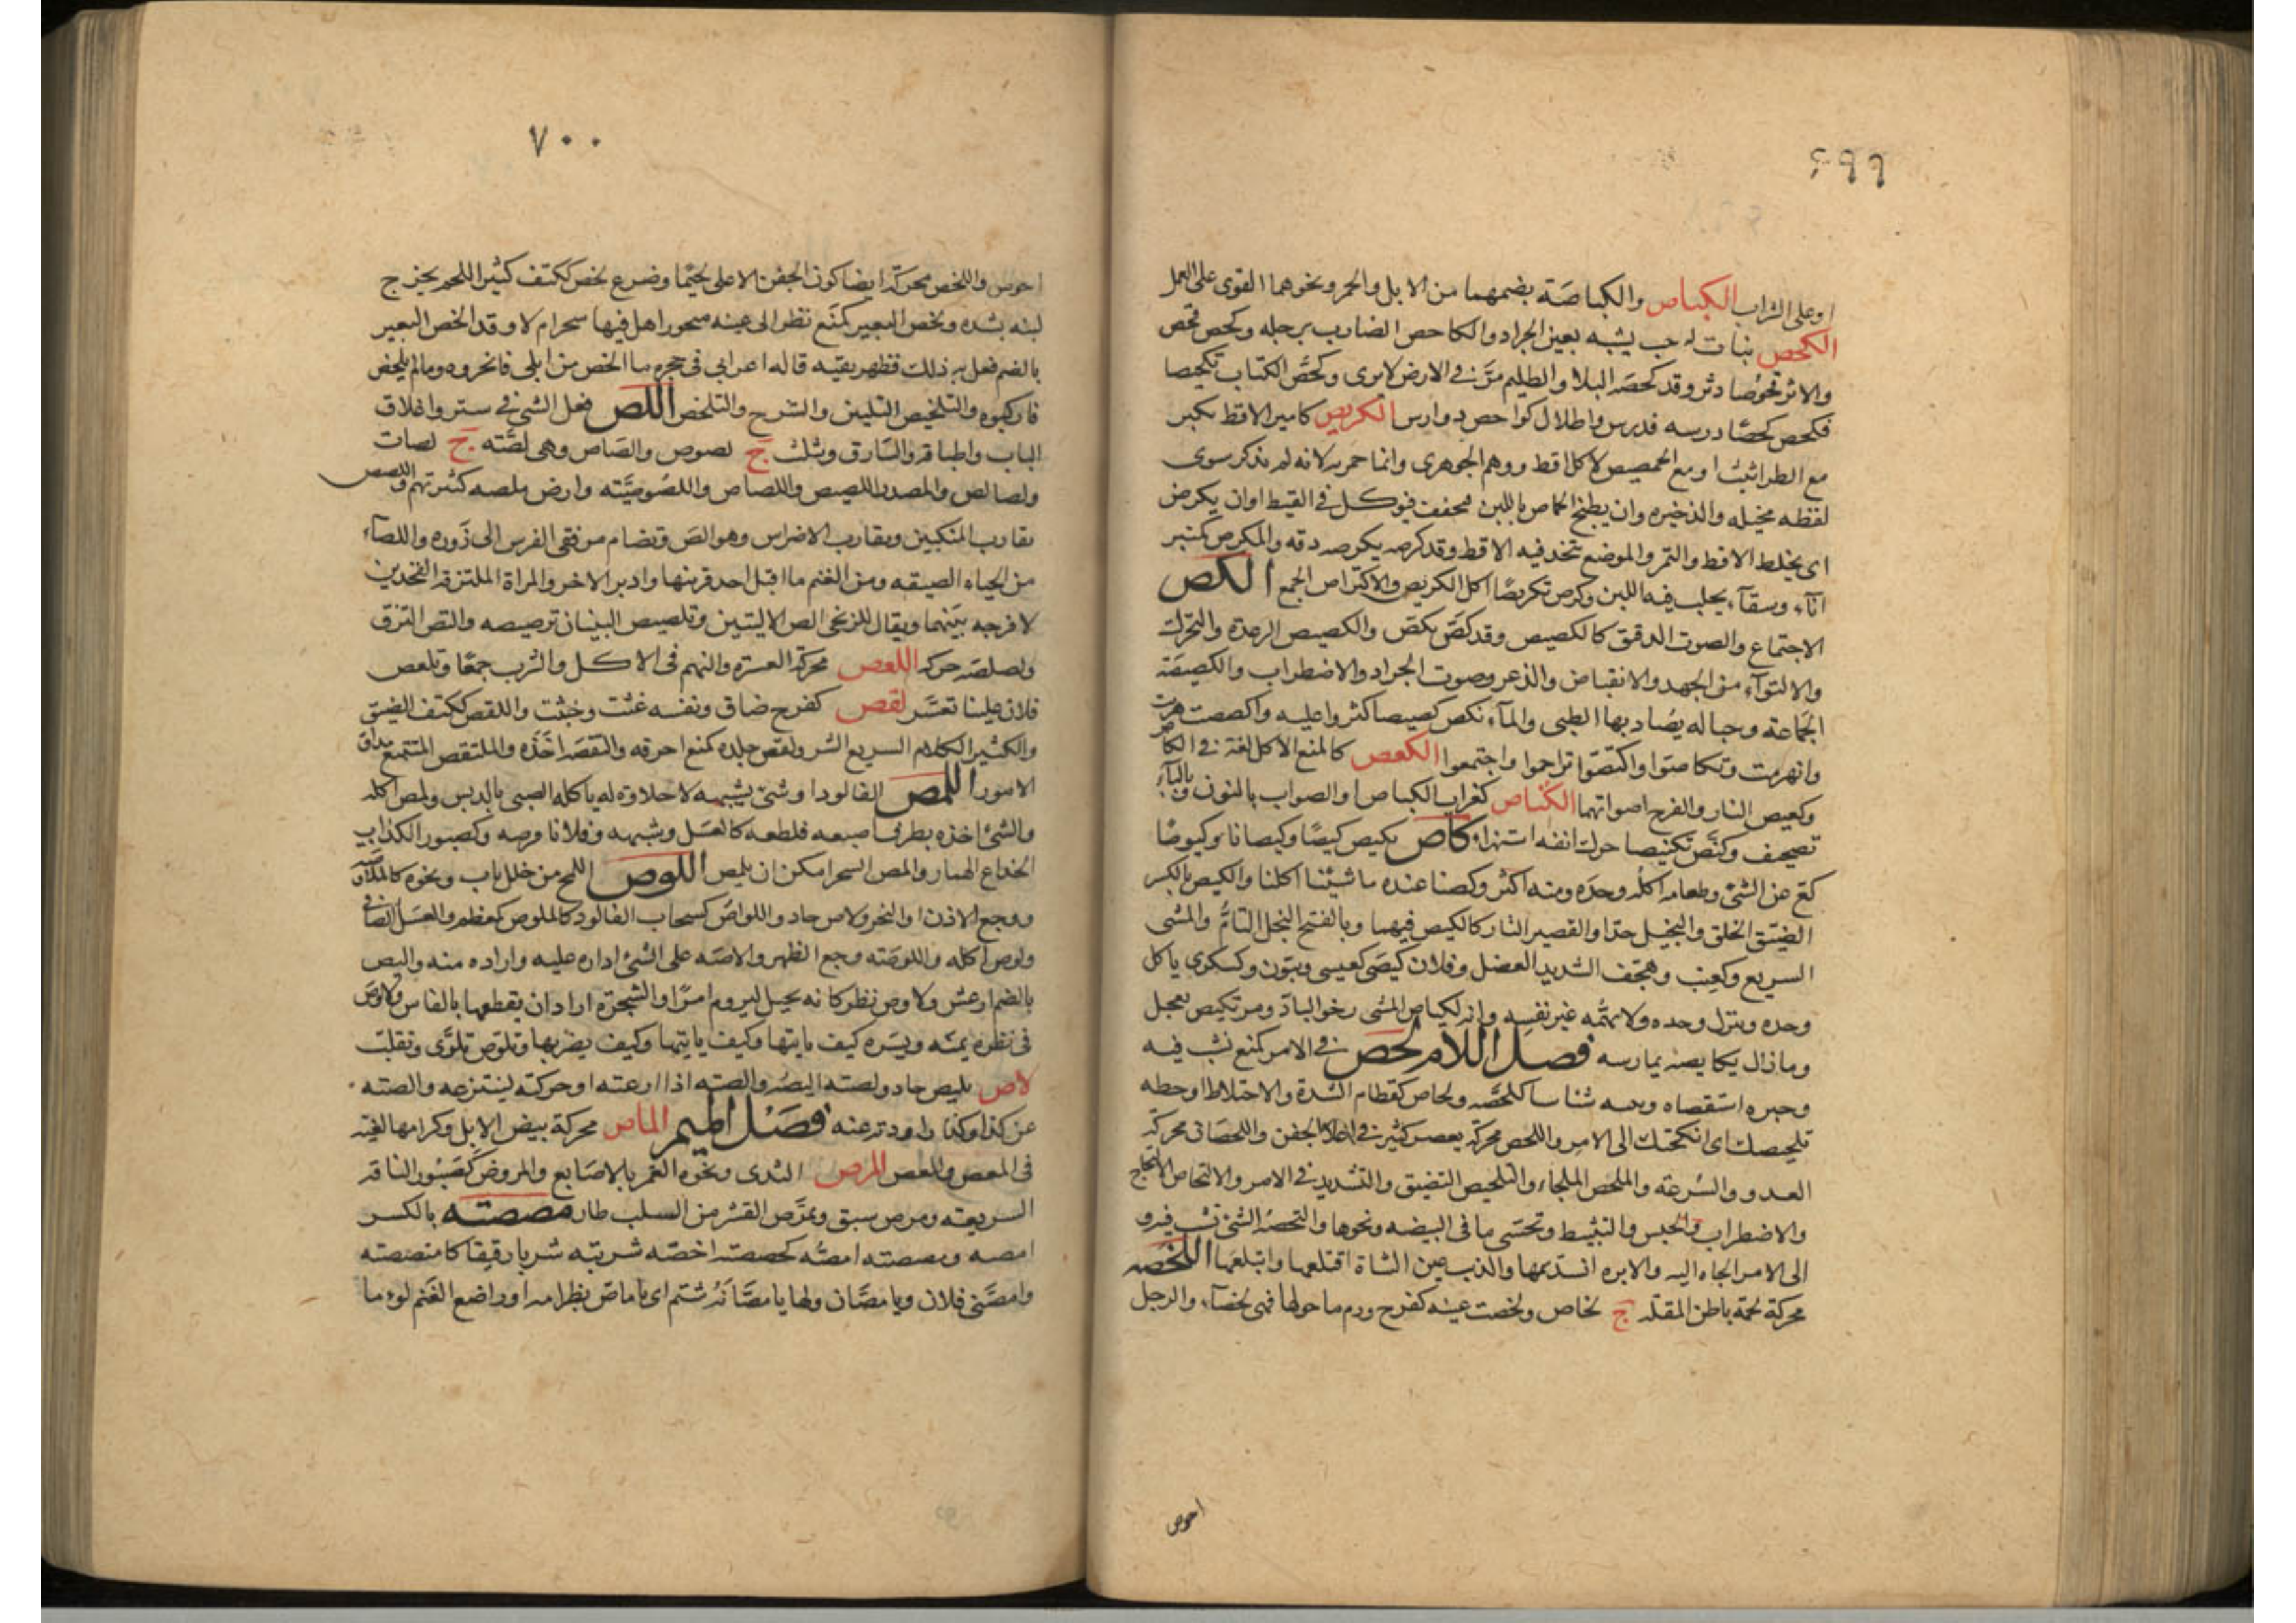 ٦٩٩
او على التراب الكباص والكباصة بضمهما من الابل والحمر ونحوهما القوى على العمل
الكحص نبات له حب يشبه بعين الجراد والكاحص الضارب برجله وكحص فحص
والاثر كحوصا دثر وقد كحصه البلا والظليم مر فى الارض لا يرى وكحص الكتاب تكحيصا
فكحص كحصا درسه فدرس واطلال كواحص دوارس الكريص كامير الاقط يكبر
مع الطراثيث او مع الحمصيص لا كل اقط ووهم الجوهرى وانما حمر به لانه لم يذكر سوى
لفظه مخيله والذخيره وان يطبخ الحماص باللبن فيجفف فيوكل فى القيظ اوان يكرض
اى يخلط الاقط والتمر والموضع تتخذ فيه الاقط وقد كرصه يكرصه دقه والمكرص كمنبر
انآء وسقآء يحلب فيه اللبن وكرص تكريصا اكل الكريص والاكتراص الجمع الكص
الاجتماع والصوت الدقيق كالكصيص وقد كص يكص والكصيص الرعدة والتحرك
والالتوآء من الجهد والانقباض والذعر وصوت الجراد والاضطراب والكصيصة
الجماعة وحباله يصاد بها الظبى والمآء نكص كصيصا كثروا عليه واكصصت هربت
وانهزمت وتكاصوا واكتصوا تزاحموا واجتمعوا الكعص كالمنع الاكل لغة فى الكأص
وكعيص النار والفرح اصواتهما الكناص كغراب الكباص او الصواب بالنون وبالبآء
تصحيف وكنص تكنيصا حرك انفه استهزاء كاص يكيص كيصا وكيصانا وكيوصا
كع عن الشئ وطعامه اكله وحده ومنه اكثر وكصنا عنده ما شيئنا اكلنا والكيص بالكسر
الضيق الخلق والبخيل جدا والقصير التار كالكيص فيهما وبالفتح البخل التام والمشى
السريع وكعنب وهجف الشديد العضل وفلان كيصى كعيسى وينون وكسكرى ياكل
وحده وينزل وحده ولا يهمه غير نفسه وانه لكياص المشى رخو الباد ومر تكيص يعجل
وما زال يكايصه يمارسه فصل اللام لحص فى الامر كمنع نشب فيه
وخبره استقصاه وبينه شيئا شيئا كلحصه ولحاص كقطام الشدة والاختلاط او خطه
تلحيصك اى انكحتك الى الامر واللحص محركة يعصن كثير فى اعلا الجفن واللحصان محركة
العدو والسرعة والملحص الملجاء والتلحيص التضيق والتشديد فى الامر والالتحاص الالتحاج
والاضطراب والحبس والتثبيط وتحسى ما فى البيضه ونحوها والتحصه الشئ نشب فيه و
الى الامر الجاه اليه والابره انسد سمها والذيب عين الشاة اقتلعها وابتلعها اللخصه
محركة لحمة باطن المقلة ج لخاص ولخصت عينه كفرح ورم ما حولها فهى لخصآء والرجل
احوص
٧٠٠
احوص واللخص محركة ايضا كون الجفن الاعلى لحيما وضرع لخص ككتف كثير اللحم يخرج
لبنه بشده ولخص البعير كمنع نظر الى عينه منحورا هل فيها سحم ام لا وقد الخص البعير
بالضم فعل به ذلك فظهر نقيه قاله اعرابى فى حجره ما الخص من ابلى فانحروه وما لم يلخص
فاركبوه والتلخيص التبيين والشرح والتلخص اللص فعل الشئ فى ستر واغلاق
الباب واطباقه والسارق ويثلث ج لصوص والصاص وهى لصته ج لصات
ولصائص والمصدر اللصص واللصاص واللصوصيته وارض ملصه كثيرتهم واللصص
تقارب المنكبين وتقارب الاضراس وهو الص وتضام مرفقى الفرس الى زوره واللصآء
من الجباه الضيقه ومن الغنم ما اقبل احد قرنيها وادبر الاخر والمراة الملتزقة الفخذين
لا فرجه بينهما ويقال للزنجى الص الاليتين وتلصيص البنيان ترصيصه والتص التزق
ولصلصه حركه اللعص محركة العسرة والنهم فى الاكل والشرب جمعا وتلعص
فلان علينا تعسر لقص كفرح ضاق ونفسه غثت وخبثت واللقص ككتف الضيق
والكثير الكلام السريع الشر ولقص جلده كمنع احرقه والتقصه اخذه والملتقص المتتبع مداق
الامور اللمص الفالود او شئ يشبهه لا حلاوة له ياكله الصبى بالدبس ولمص اكله
والشئ اخذه بطرف اصبعه فلطعه كالعسل وشبهه وفلانا قرصه وكصبور الكذاب
الخداع الهماز والمص الشجر امكن ان يلمص اللوص اللمح من خلل باب ونحوه كالملاوصه
ووجع الاذن او النحر ولاص حاد واللواص كسحاب الفالود كالملوص كمعظم والعسل الصافى
ولوص اكله واللوصته وجع الظهر والاصه على الشئ اداره عليه واراده منه واليص
بالضم ارعش ولاوص نظر كانه يختل ليروم امرا والشجرة اراد ان يقطعها بالفاس ولاوص
فى نظره يمنه ويسره كيف ياتيها وكيف ياتيها وكيف يضربها وتلوص تلوى وتقلب
لاص يليص حاد ولصته اليصه والصته اذا ارعته او حركته لينتزعه والصته
عن كذا وكذا راودته عنه فصل الميم الماص محركة بيض الابل وكرامها لغية
فى المعص والمغص المرص الثدى ونحوه الغمر بالاصابع والمروض كصبور الناقه
السريعة ومرص سبق وتمرص القشر من السلب طار مصصته بالكسر
امصه ومصصته امصه كخصصته اخصه شربته شربا رقيقا كامتصصته
وامصنى فلان ويا مصان ولها يا مصانة شتم اى يا ماص بظر امه او راضع الغنم لوءما